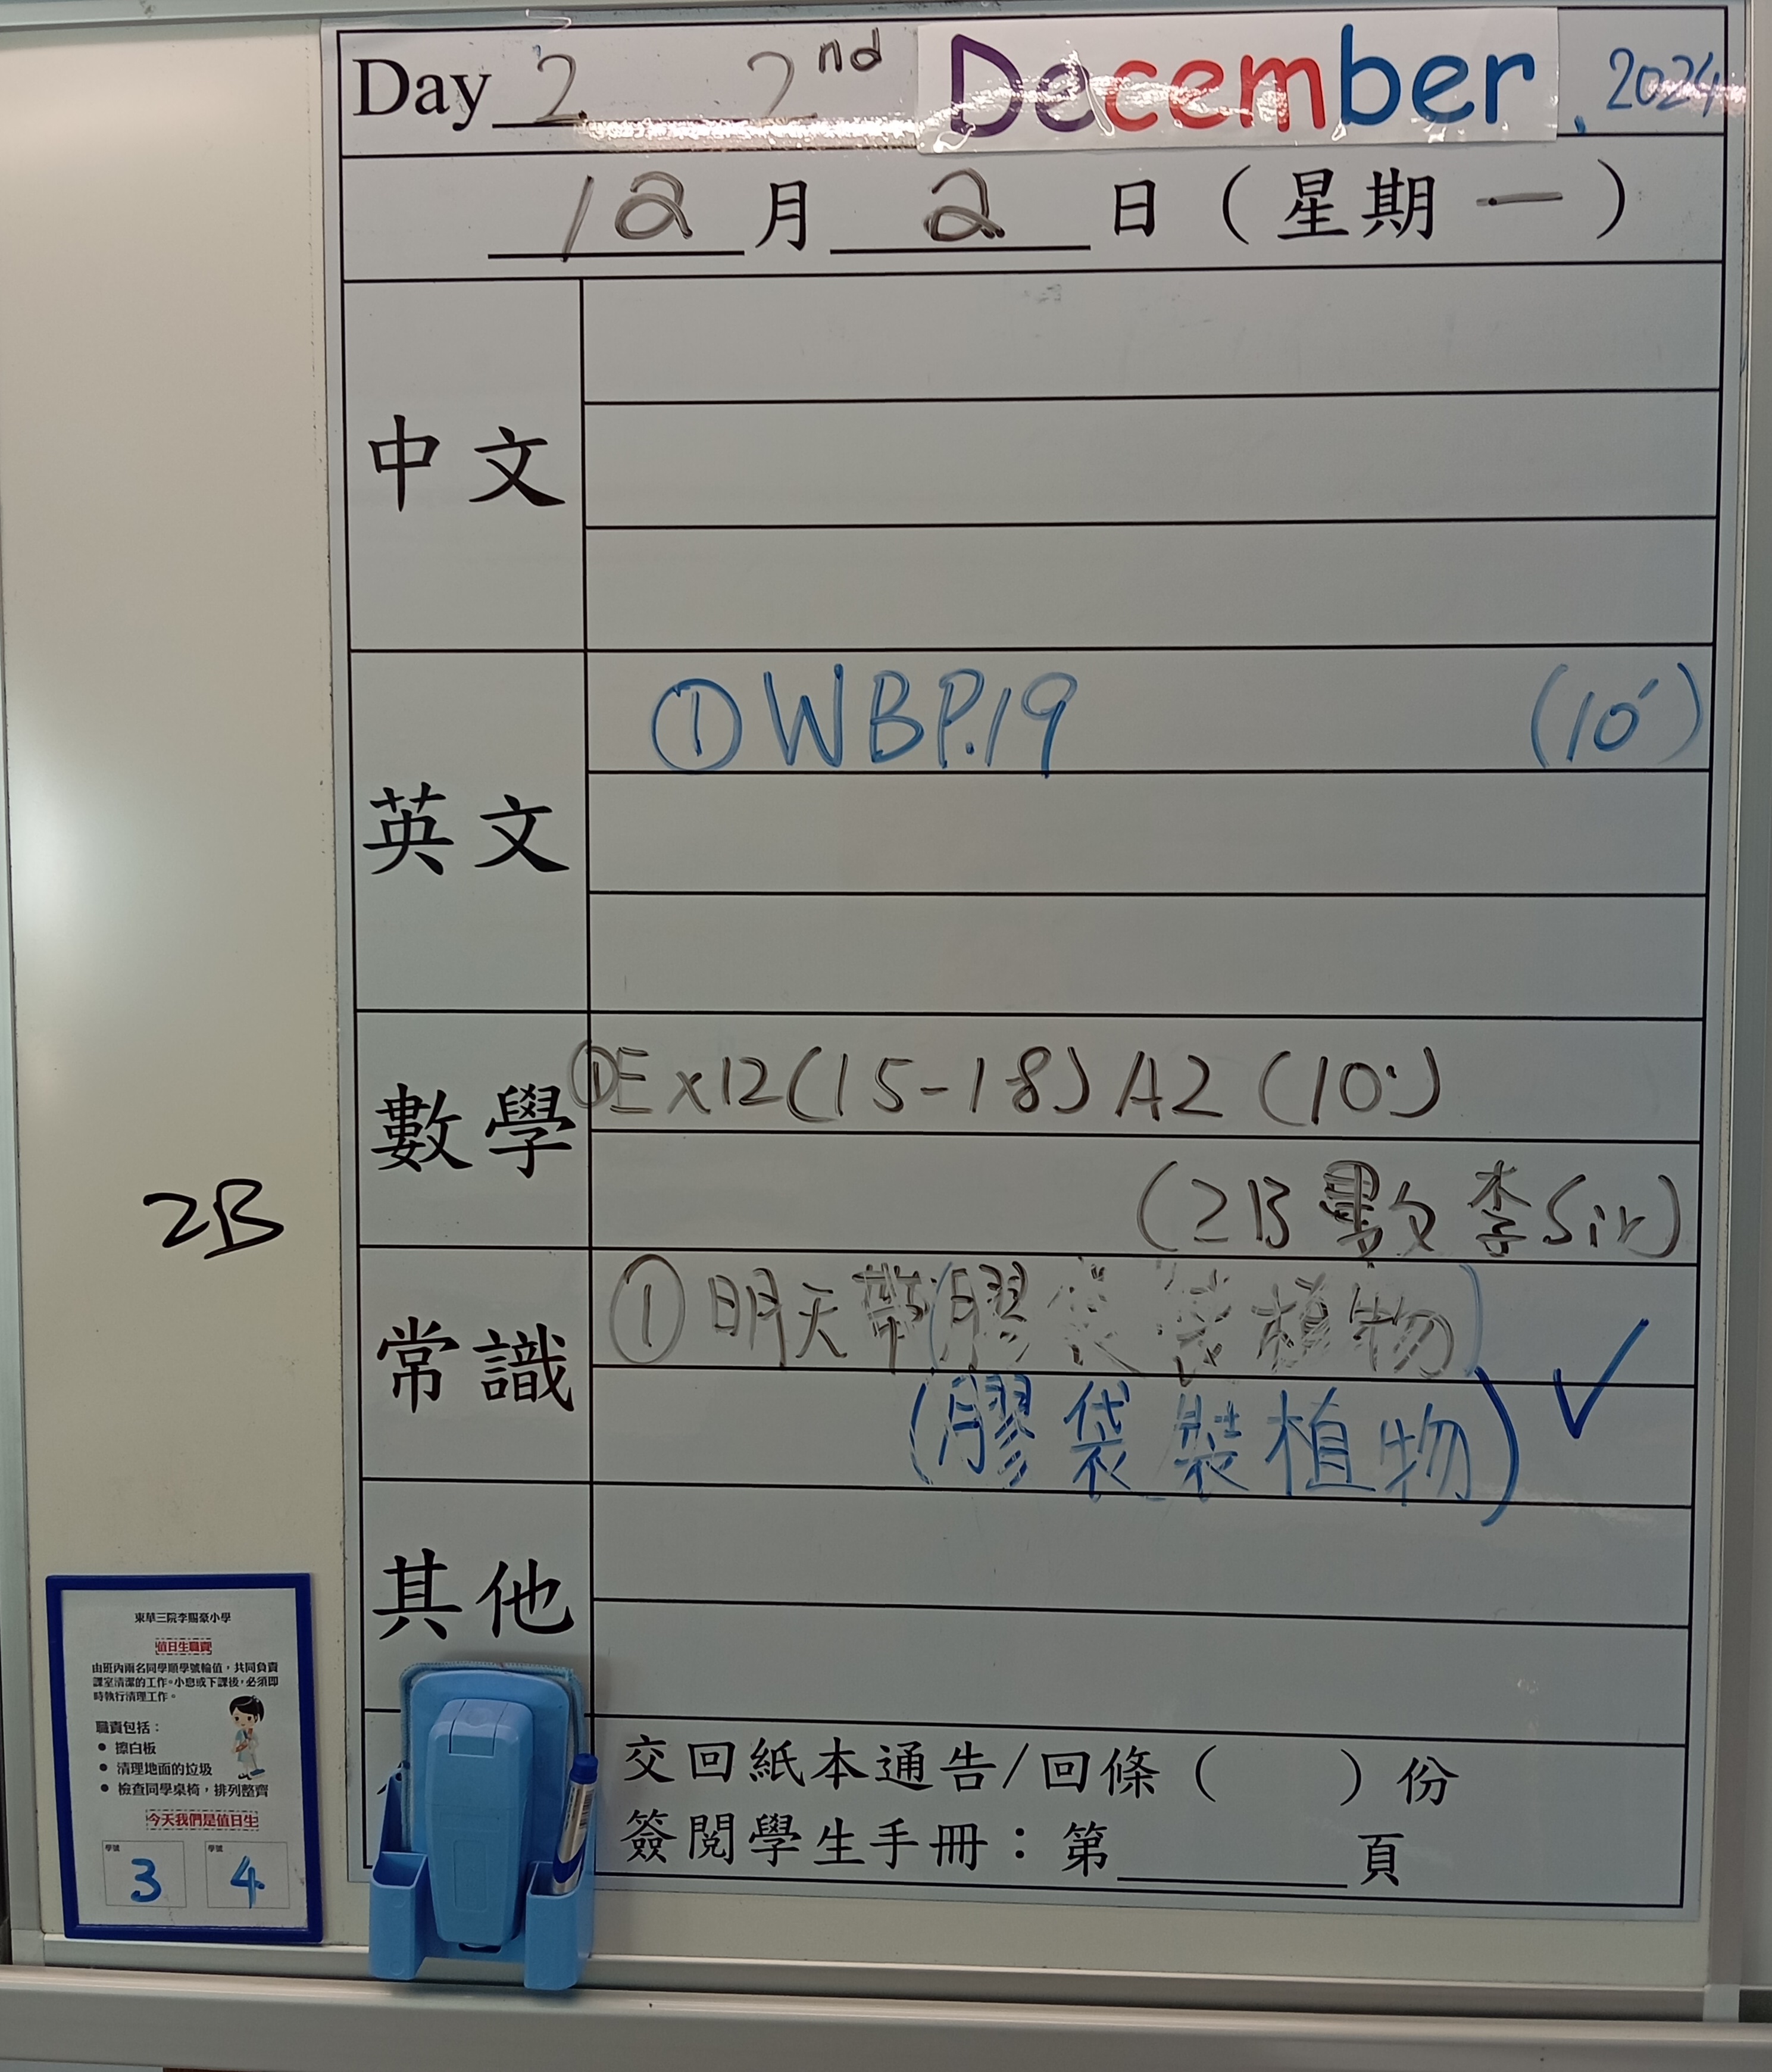 Day 2 2nd December, 2024
12月2日(星期一)
中文
英文
① WB P.19 (10')
數學
① Ex12(15-18) A2 (10')
(2B 數 李Sir)
2B
常識
① 明天帶(膠袋裝植物)
(膠袋裝植物) ✓
其他
交回紙本通告/回條( )份
簽閱學生手冊:第______頁
東華三院李賜豪小學
值日生職責
由班內兩名同學順學號輪值,共同負責
課室清潔的工作。小息或下課後,必須即
時執行清理工作。
職責包括:
• 擦白板
• 清理地面的垃圾
• 檢查同學桌椅,排列整齊
今天我們是值日生
學號 學號
3 4